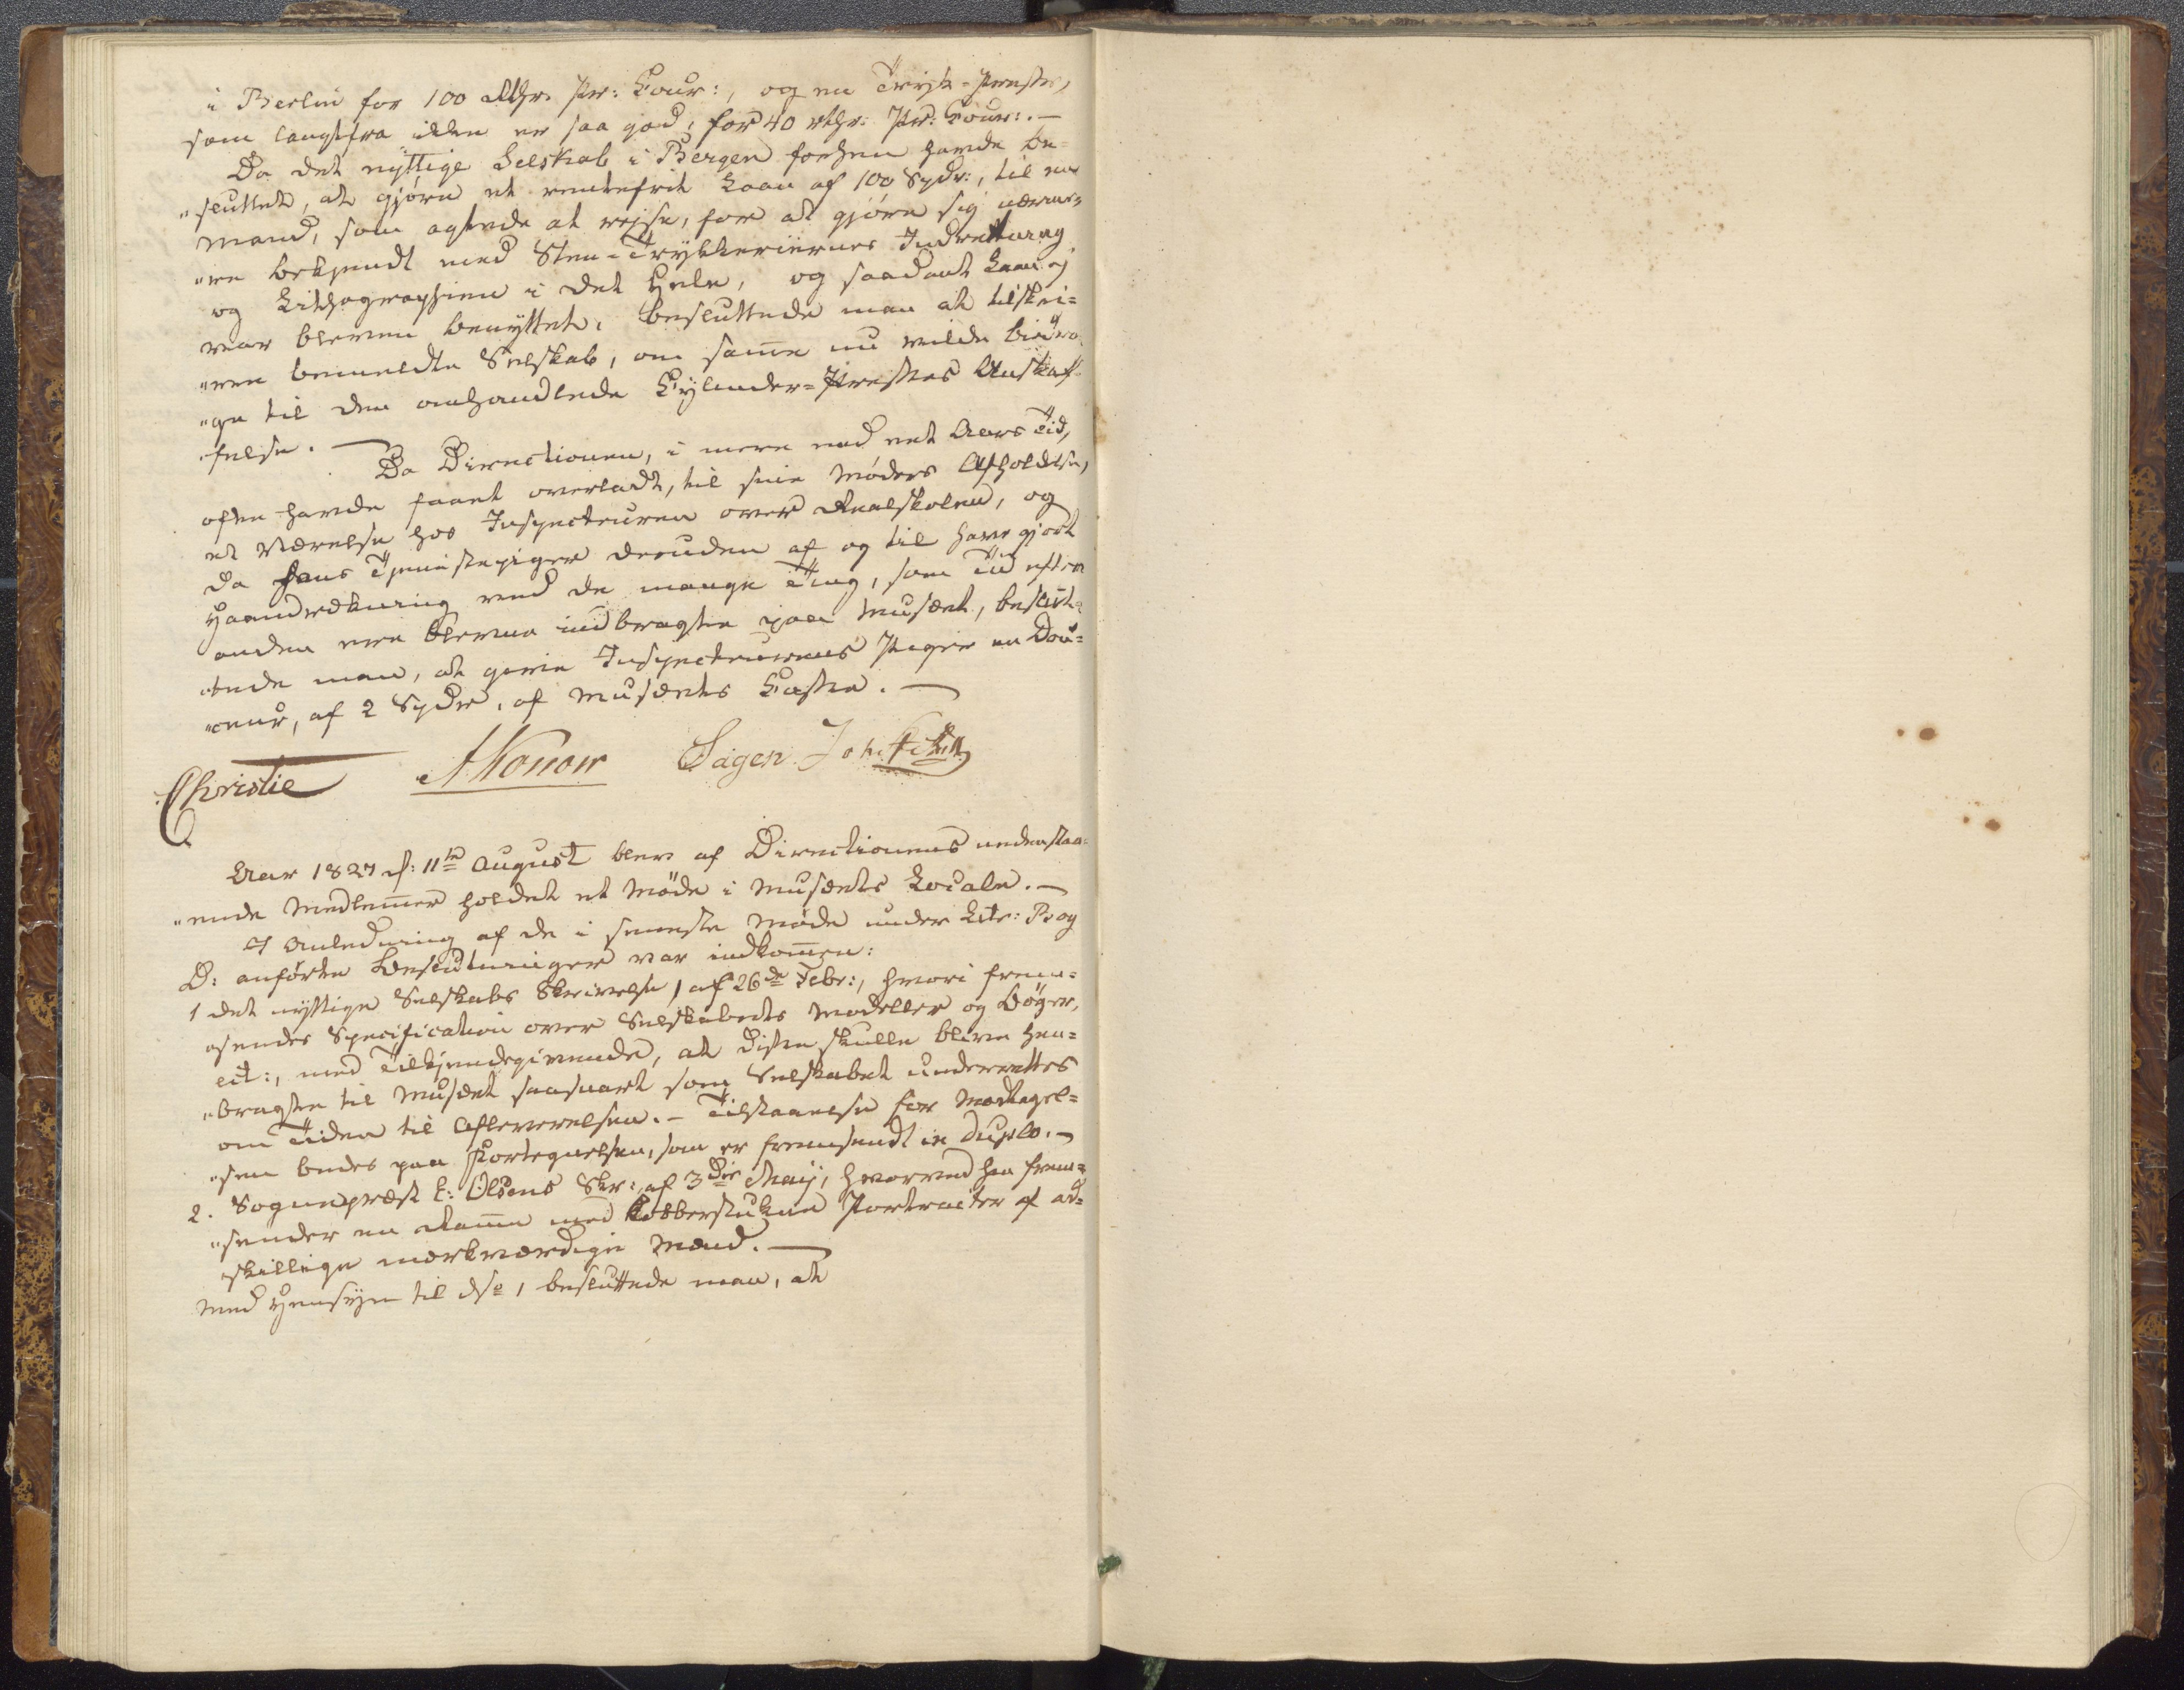 i Berlin for 100 Rthr. Pr: Cour:, og en Tryk-Presse,
som langtfra ikke er saa god, for 40 rthr: Pr: Cour:. —
Da det nyttige Selskab i Bergen forhen havde be=
"sluttet, at gjøre et rentefrit Laan af 100 Spdr:, til en
Mand, som agtede at rejse, for at gjøre sig nærme=
"re bekjendt med Steen-Trykkeriernes Indretning
og Lithographien i det Hele, og saadant Laan ej
var bleven benyttet, besluttede man at tilskri=
"ve bemeldte Selskab, om samme nu vilde bidra=
"ge til den omhandlede Cylinder-Presses Anskaf=
felse. —
Da Directionen, i mere end eet Aars Tid,
ofte havde faaet overladt, til sine Møders Afholdelse,
et Værelse hos Inspecteuren over Realskolen, og
da hans Tjenestepiger desuden af og til have gjort
Haandrækning med de mange Ting, som Tid efter
anden ere blevne indbragte paa Musæet, beslut=
"tede man, at give Inspecteurens Piger en Dou=
"ceur, af 2 Spdr, af Musæets Casse. —
Christie A Konow Sagen Joh:
Aar 1827 d: 11te August blev af Directionens undenstaa=
"ende Medlemmer holdet et Møde i Musæets Locale. —
I Anledning af de i seneste Møde under Litr: B og
D: anførte Beslutninger var indkommen:
1 det nyttige Selskabs Skrivelse, af 26de Febr:, hvori frem=
"sendes Specification over Selskabets Modeller og Bøger,
ect:, med Tilkjendegivende, at disse skulle blive hen=
"bragte til Musæet saasnart som Selskabet underrettes
om Tiden til Afleverelsen. – Tilstaaelse for Modtagel=
"sen bedes paa Fortegnelsen, som er fremsendt in duplo. –
2. Sognepræst E: Olsens Skr: af 3die Maij, hvorved han frem=
"sender en Ramme med kobberstukne Portraiter af ad=
skillige mærkværdige Mænd. —
Med Hensyn til No 1 besluttede man, at